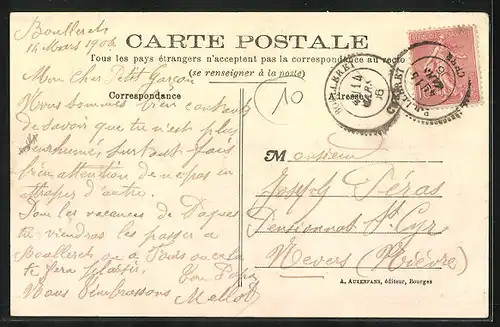 Boulleret
14 Mars 1906
CARTE POSTALE
Tous les pays étrangers n'acceptent pas la correspondance au recto
(se renseigner à la poste)
Correspondance
Adresse
10
Mon Cher Petit Garçon
Nous sommes bien contents
de savoir que tu n'est plus
enrhumé, surtout fais
bien attention de ne pas en
attraper d'autre.
Pour les vacances de Paques
tu viendras les passer a
Boulleret ou a Paris ou cela
te fera plaisir. Ton Papa
Nous t'embrassons Mellot
Monsieur
Joseph Péras
Pensionnat St Cyr
Nevers (Nièvre)
A. AUXENFANS, éditeur, Bourges